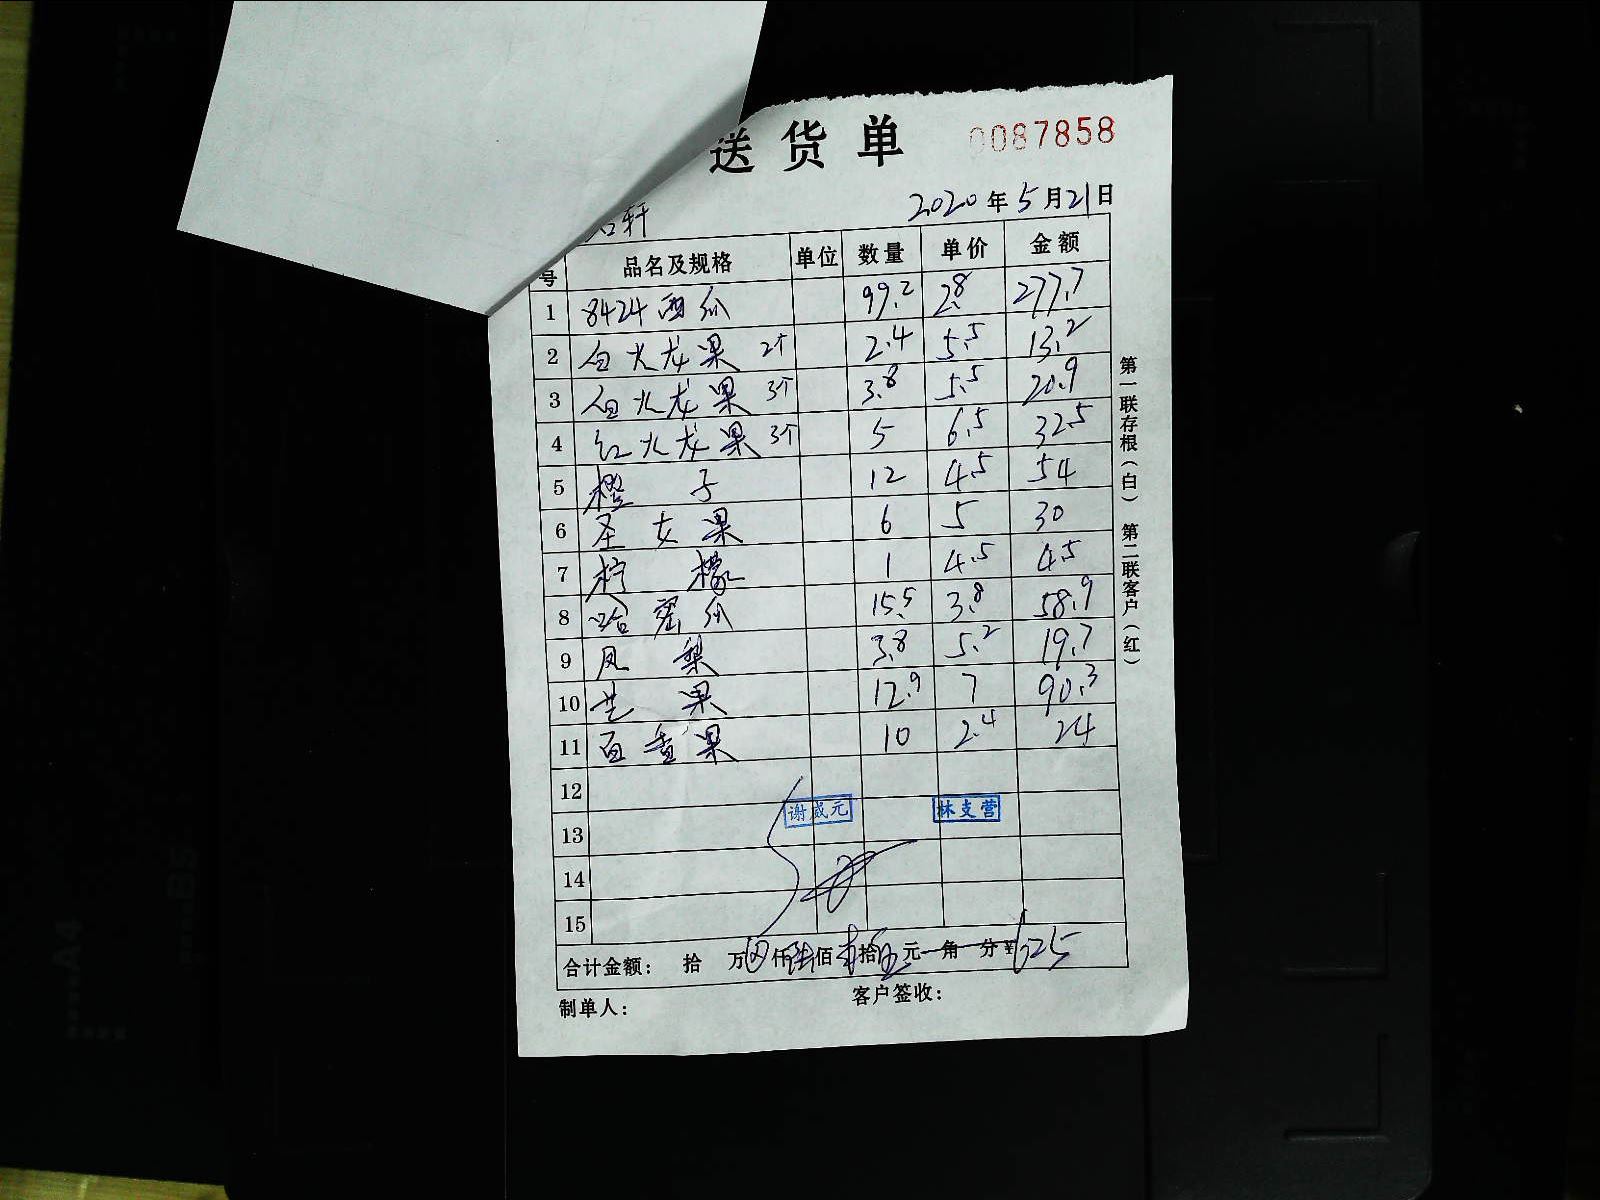 送货单 0087858
2020年5月21日
轩
号 品名及规格 单位 数量 单价 金额
1 8424西瓜 99.2 2.8 277.7
2 白火龙果 2个 2.4 5.5 13.2
3 白火龙果 3个 3.8 5.5 20.9
4 红火龙果 3个 5 6.5 32.5
5 橙子 12 4.5 54
6 圣女果 6 5 30
7 柠檬 1 4.5 4.5
8 哈蜜瓜 15.5 3.8 58.9
9 凤梨 3.8 5.2 19.7
10 芒果 12.9 7 90.3
11 百香果 10 2.4 24
12
谢威元 林支营
13
14
15
合计金额: 拾 万 仟陆佰 拾伍元 角 分 ¥625
制单人: 客户签收:
第一联存根(白) 第二联客户(红)
A4
B5